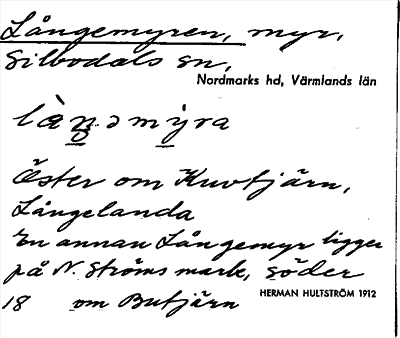 Långemyren, myr,
Silbodals sn,
Nordmarks hd, Värmlands län
Öster om Kuvtjärn,
Långelanda
En annan Långemyr ligger
på N. Ströms mark, söder
18 om Butjärn
HERMAN HULTSTRÖM 1912